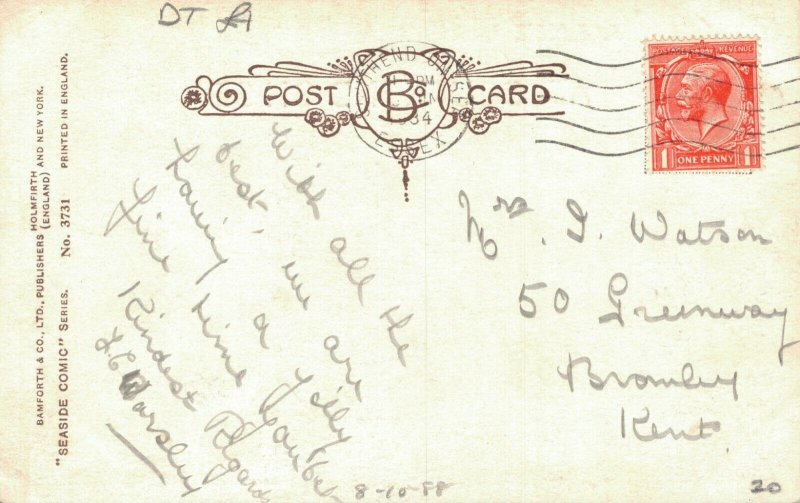 DT
BAMFORTH & CO., LTD., PUBLISHERS HOLMFIRTH (ENGLAND) AND NEW YORK.
"SEASIDE COMIC" SERIES. No. 3731 PRINTED IN ENGLAND.
POST CARD
Bo
34
ESSEX
POSTAGE REVENUE
1 ONE PENNY 1
With all the
best, we are
having a jolly
fine time
Kindest Regards
Worsley
Mrs. I. Watson
50 Greenway
Bromley
Kent.
8-10-88
20